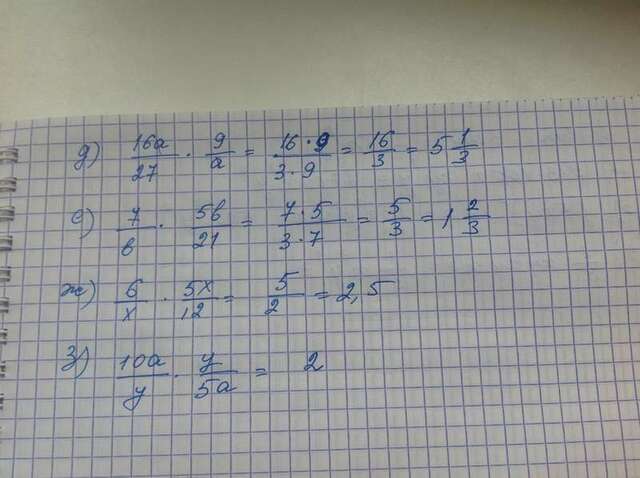 д) 16a/27 · 9/a = 16·9/3·9 = 16/3 = 5 1/3
е) 7/в · 5в/21 = 7·5/3·7 = 5/3 = 1 2/3
ж) 6/x · 5x/12 = 5/2 = 2,5
з) 10a/y · y/5a = 2